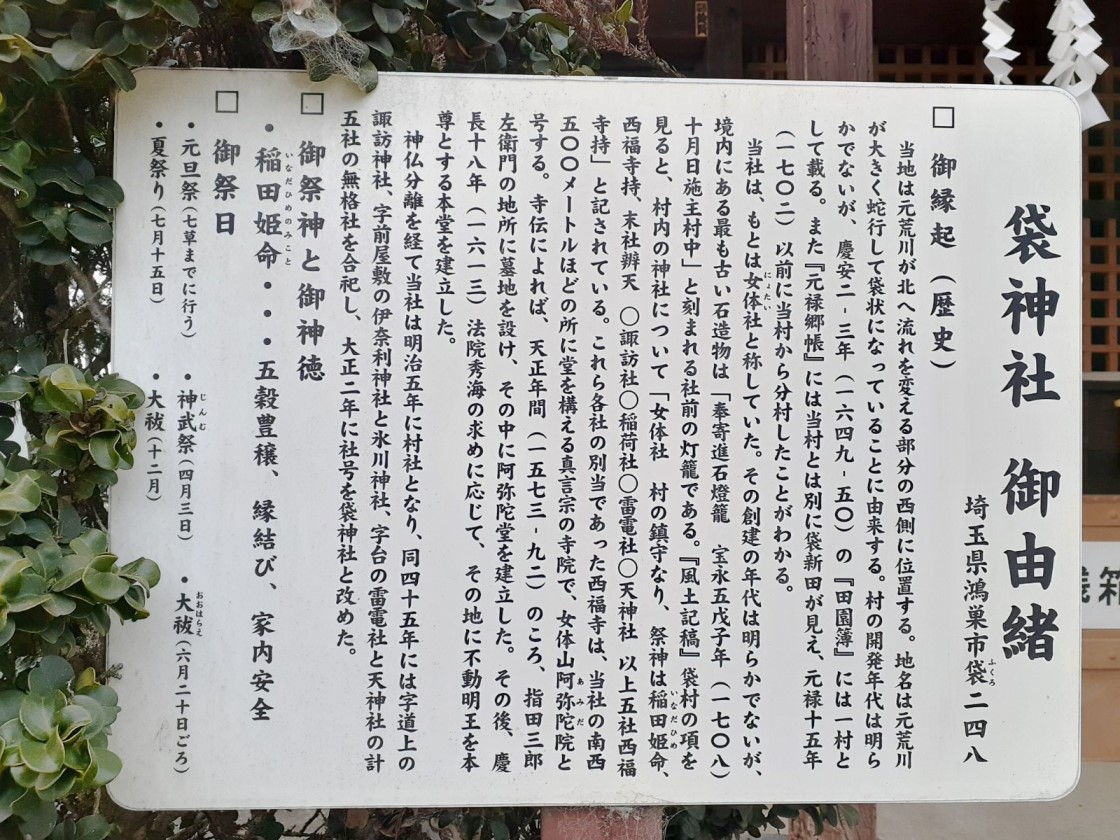 袋神社 御由緒
埼玉県鴻巣市袋二四八
□ 御縁起（歴史）
当地は元荒川が北へ流れを変える部分の西側に位置する。地名は元荒川
が大きく蛇行して袋状になっていることに由来する。村の開発年代は明ら
かでないが、慶安二-三年（一六四九-五〇）の『田園簿』には一村と
して載る。また『元禄郷帳』には当村とは別に袋新田が見え、元禄十五年
（一七〇二）以前に当村から分村したことがわかる。
当社は、もとは女体社と称していた。その創建の年代は明らかでないが、
境内にある最も古い石造物は「奉寄進石燈籠 宝永五戊子年（一七〇八）
十月日施主村中」と刻まれる社前の灯籠である。『風土記稿』袋村の項を
見ると、村内の神社について「女体社 村の鎮守なり、祭神は稲田姫命、
西福寺持、末社辨天 〇諏訪社〇稲荷社〇雷電社〇天神社 以上五社西福
寺持」と記されている。これら各社の別当であった西福寺は、当社の南西
五〇〇メートルほどの所に堂を構える真言宗の寺院で、女体山阿弥陀院と
号する。寺伝によれば、天正年間（一五七三-九二）のころ、指田三郎
左衛門の地所に墓地を設け、その中に阿弥陀堂を建立した。その後、慶
長十八年（一六一三）法院秀海の求めに応じて、その地に不動明王を本
尊とする本堂を建立した。
神仏分離を経て当社は明治五年に村社となり、同四十五年には字道上の
諏訪神社、字前屋敷の伊奈利神社と氷川神社、字台の雷電社と天神社の計
五社の無格社を合祀し、大正二年に社号を袋神社と改めた。
□ 御祭神と御神徳
・稲田姫命・・・五穀豊穣、縁結び、家内安全
□ 御祭日
・元旦祭（七草までに行う） ・神武祭（四月三日） ・大祓（六月二十日ごろ）
・夏祭り（七月十五日） ・大祓（十二月）